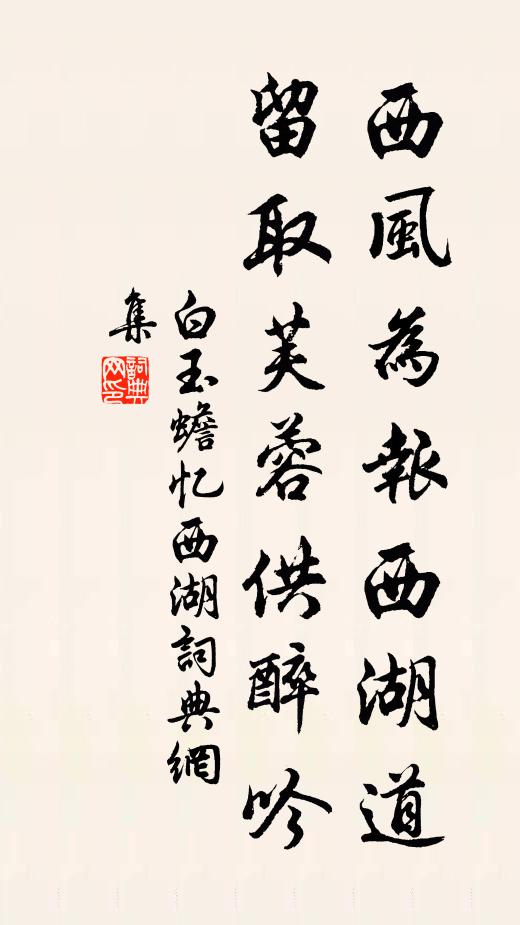 西風為報西湖道
留取芙蓉供醉吟
白玉蟾忆西湖詞典網
集
詞典网印